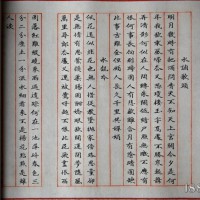 水調歌頭
明月幾時有把酒問青天不知天上宮闕今夕是何
年我欲乘風歸去又恐瓊樓玉宇高處不勝寒起舞
弄清影何似在人間轉朱閣低綺户照無眠不應有
恨何事長向別時圓人有悲歡離合月有陰晴圓缺
此事古難全但願人長久千里共嬋娟
水龍吟
似花還似非花也無人惜從教墜拋家傍路思量却
是無情有思縈損柔腸困酣嬌眼欲開還閉夢隨風
萬里尋郎去處又還被鶯呼起不恨此花飛盡恨西
園落紅難綴曉來雨過遺蹤何在一池萍碎春色三
分二分塵土一分流水細看來不是楊花點點是離
人淚